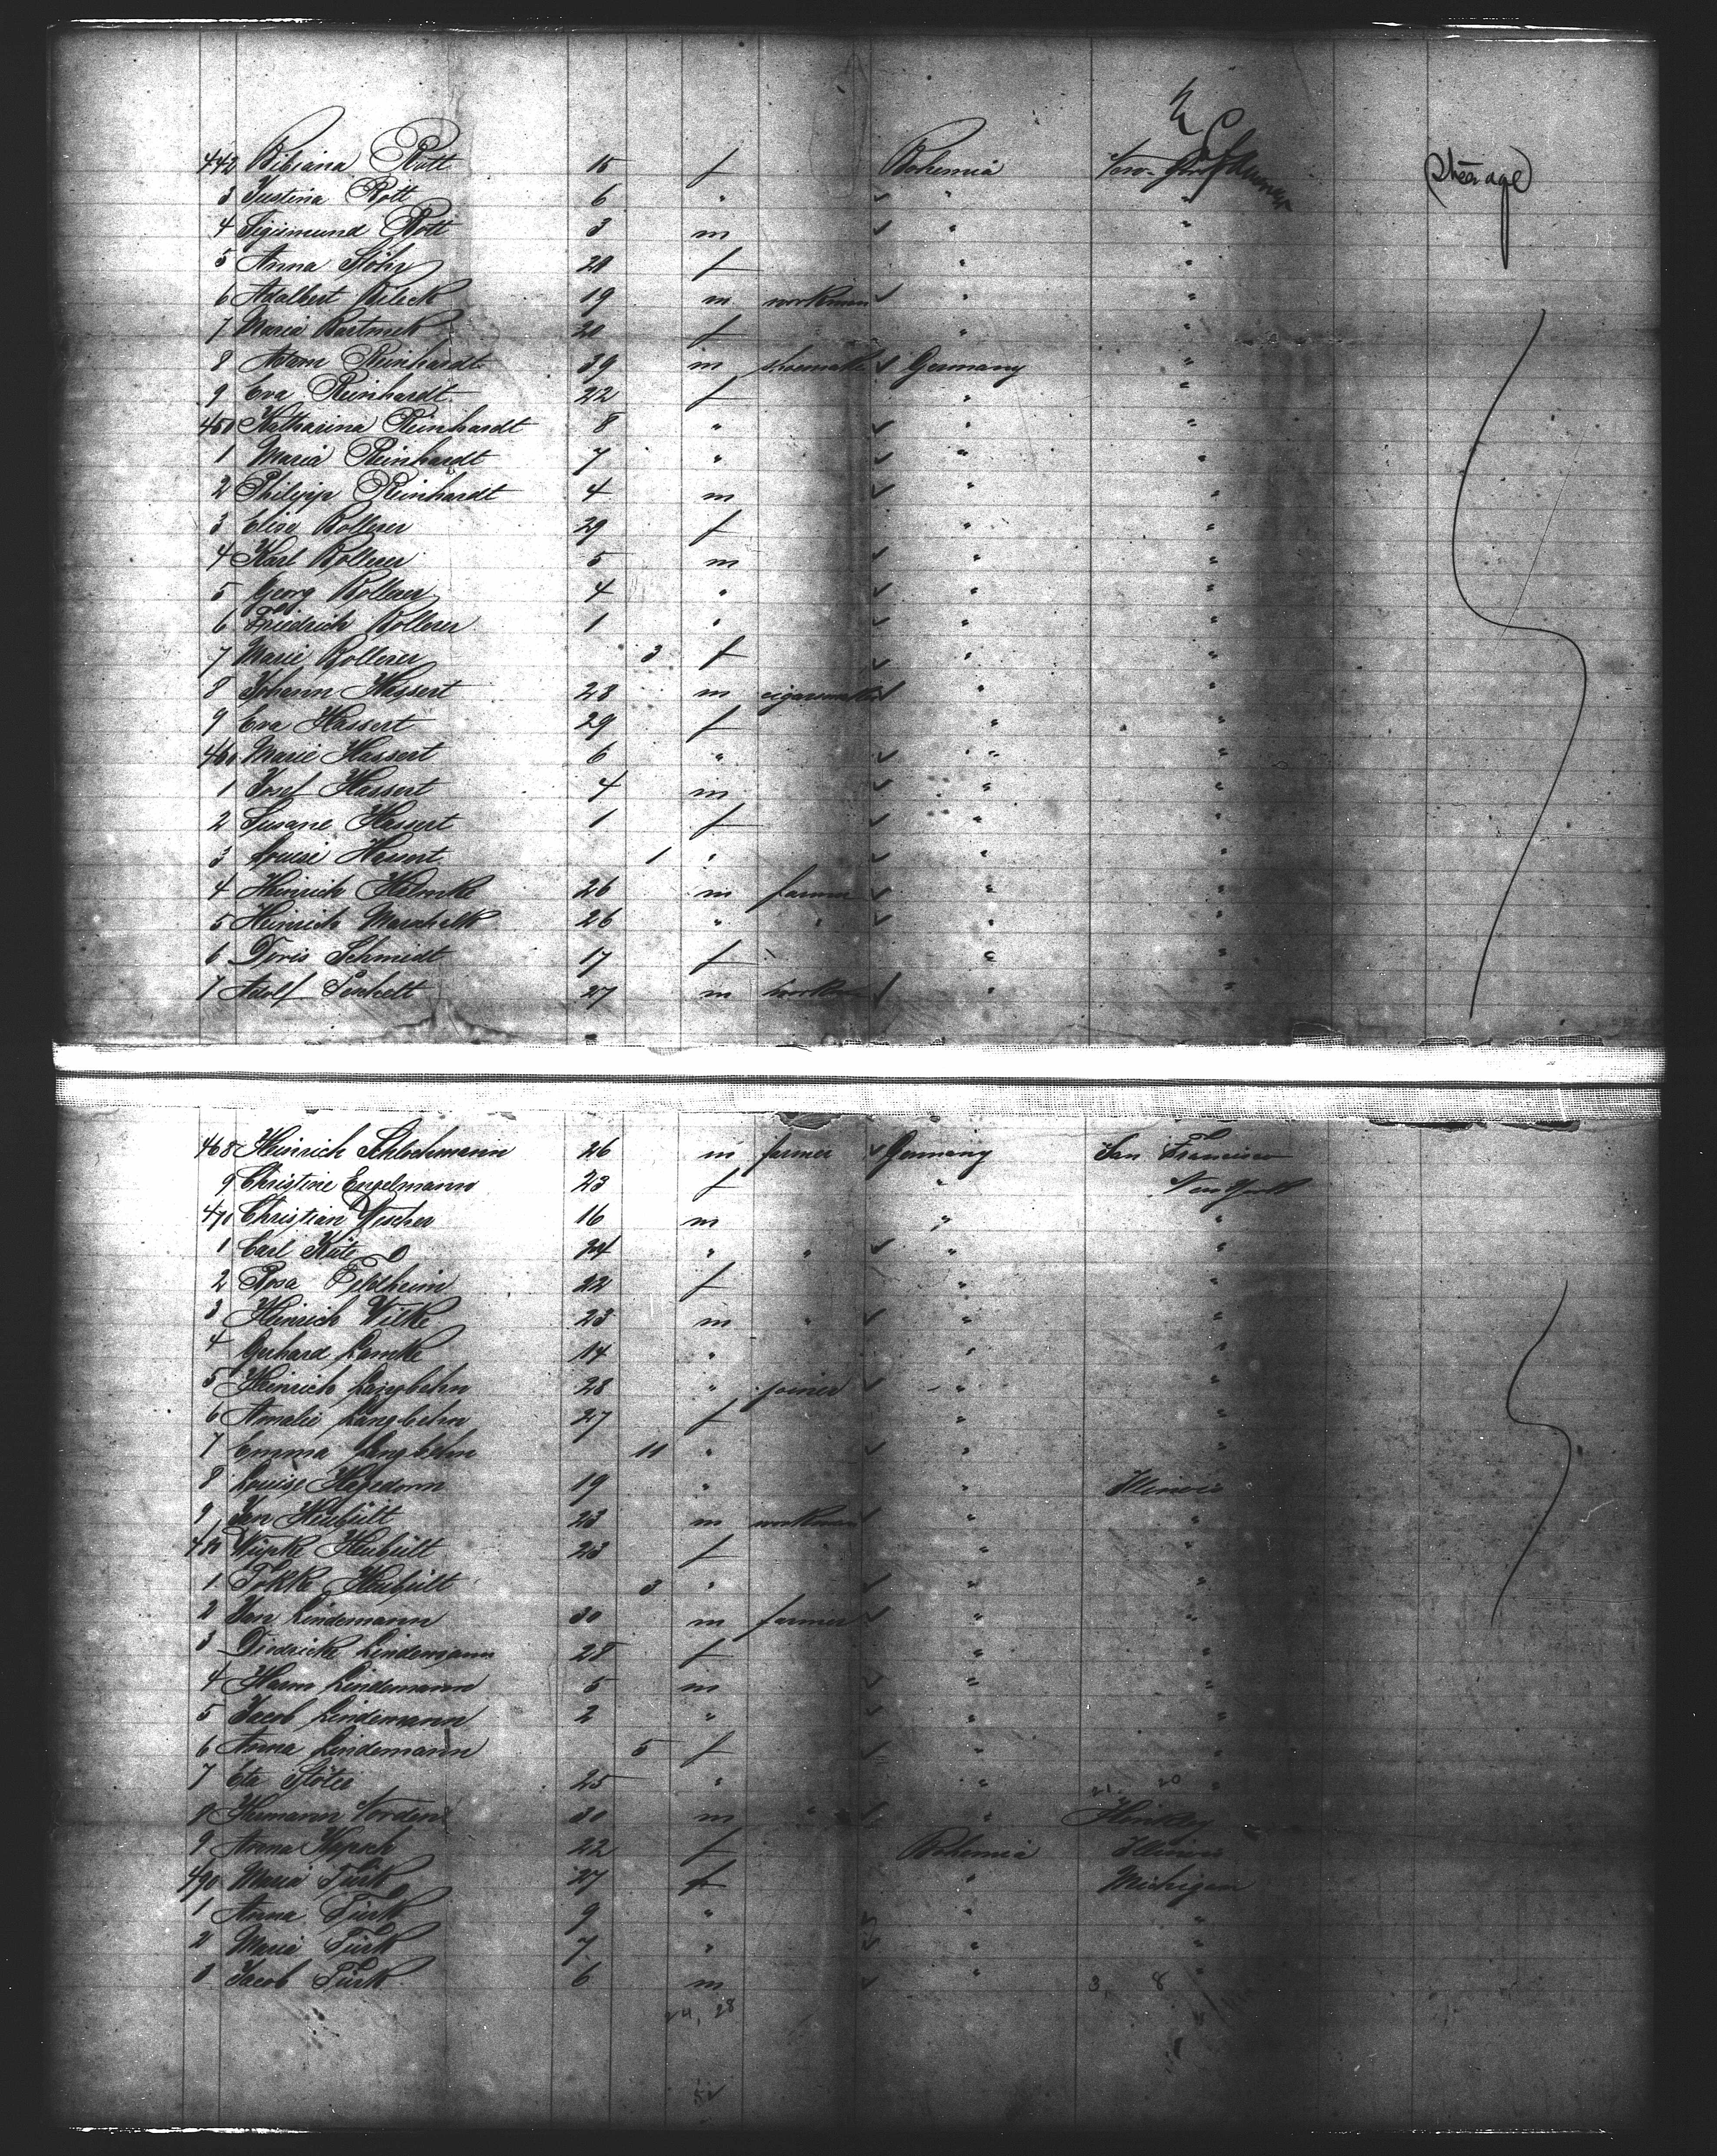 442 Bibiana Rott 15 f Bohemia New-York (Steerage)
3 Justina Rott 6 " " "
4 Sigismund Rott 3 m " "
5 Anna Stöhr 20 f " "
6 Adalbert Bileck 19 m workman " "
7 Maria Bartmek 20 f " "
8 Adam Reinhardt 39 m shoemaker Germany "
9 Eva Reinhardt 22 f " "
450 Katharina Reinhardt 8 " " "
1 Maria Reinhardt 7 " " "
2 Philipp Reinhardt 4 m " "
3 Elise Bollerer 29 f " "
4 Karl Bollerer 5 m " "
5 Georg Bollerer 4 " " "
6 Friedrich Bollerer 1 " " "
7 Marie Bollerer 3 f " "
8 Johann Hassert 28 m cigarmaker " "
9 Eva Hassert 29 f " "
460 Marie Hassert 6 " " "
1 Josef Hassert 4 m " "
2 Susane Hassert 1 f " "
3 Louise Hassert 1 " " "
4 Heinrich Helmke 26 m farmer " "
5 Heinrich 26 " " " "
6 Doris Schmidt 17 f " "
7 Adolf 27 m workman " "
468 Heinrich Schlochmann 26 m farmer Germany San Francisco
9 Christine Engelmann 23 f " New York
470 Christian Vescher 16 m " "
1 Carl Küte 24 " " " "
2 Rosa Feldheim 22 f " "
3 Heinrich Wilke 23 m " " "
4 Gerhard Lamke 14 " " "
5 Heinrich Langbehn 28 " joiner " "
6 Amalie Langbehn 27 f " "
7 Emma Langbehn 11 " " "
8 Louise Hagedorn 19 " " Illinois
9 Jan Heibült 23 m workman " "
480 Wüpke Heibült 23 f " "
1 Tökke Heibült 3 " " "
2 Jan Lindemann 30 m farmer " "
3 Diedricke Lindemann 28 f " "
4 Harm Lindemann 5 m " "
5 Jacob Lindemann 2 " " "
6 Anna Lindemann 5 f " "
7 Eta 25 " " 20 "
8 Hermann Norden 30 m " " Hinkley
9 Anna 22 f Bohemia Illinois
490 Maria Türk 27 f " Michigan
1 Anna Türk 9 " " "
2 Maria Türk 7 " " "
3 Jacob Türk 6 m " 3, 8 "
24, 28
52